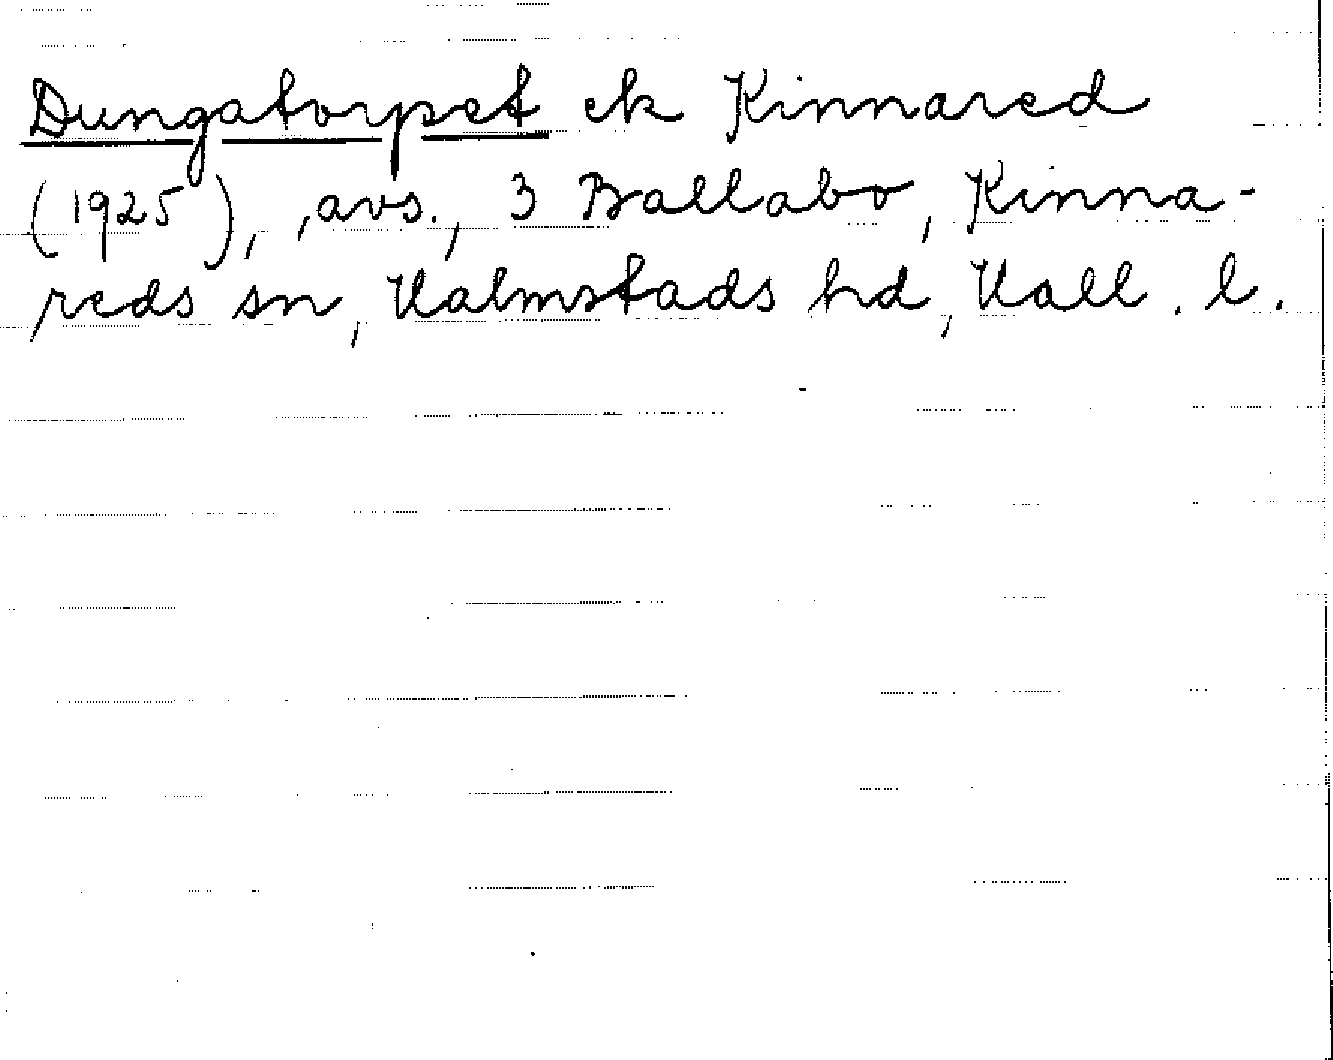 Dungatorpet ek Kinnared
(1925), ,avs., 3 Ballabo, Kinna-
reds sn, Halmstads hd, Hall. l.